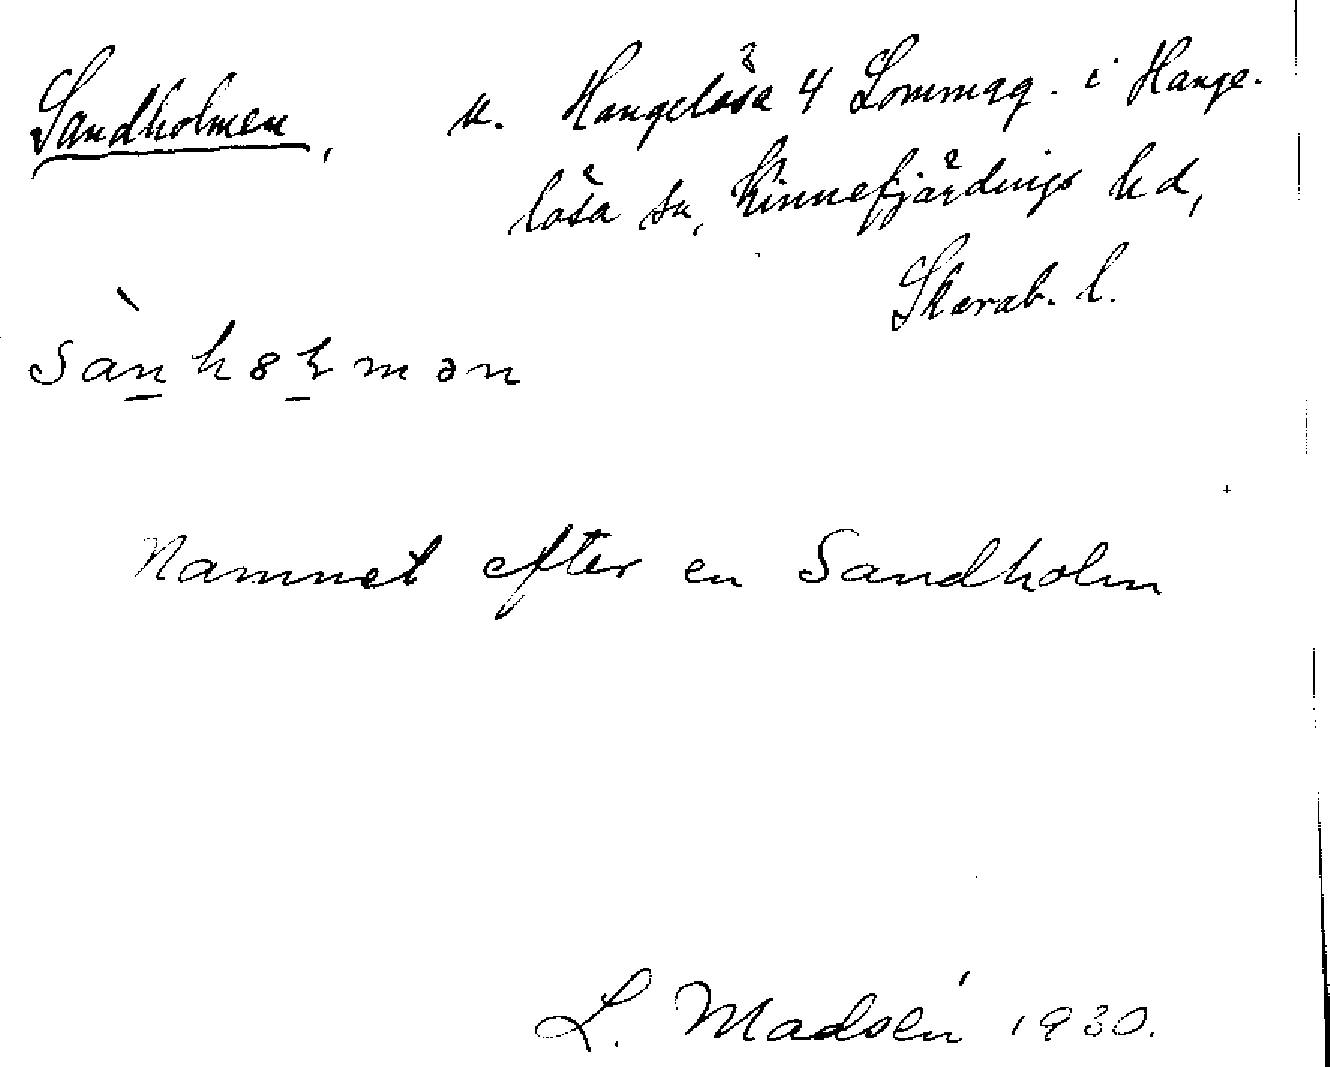 Sandholmen, u. Hangelösa 4 Lommag. i Hange-
lösa sn, Kinnefjärdings hd,
Skarab. l.
sànhoɫmən
Namnet efter en Sandholm
L. Madsén 1930.